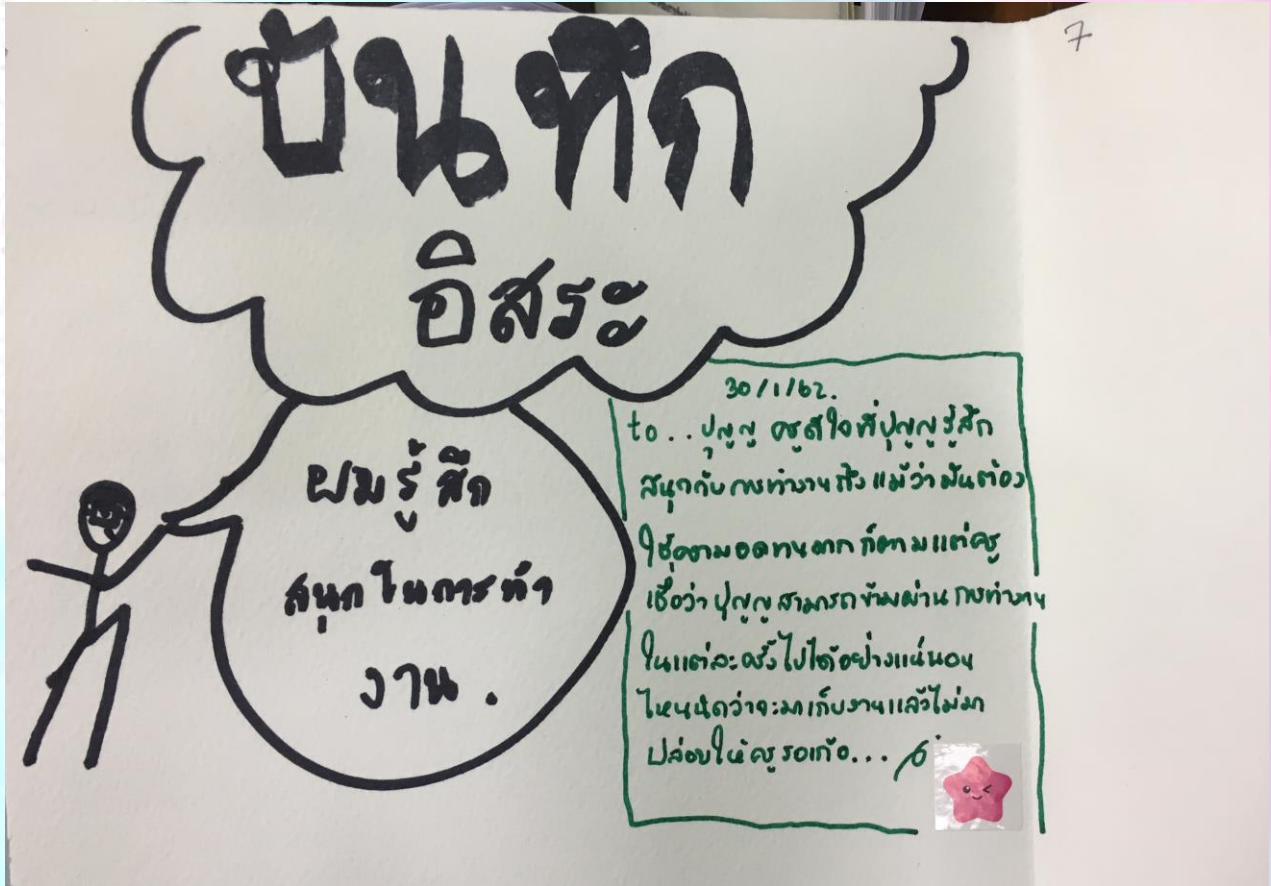 7
บันทึก
อิสระ
ผมรู้สึก
สนุกในการทำ
งาน.
30/1/62.
to.. ปุญญ ครูดีใจที่ปุญญรู้สึก
สนุกกับการทำงานถึงแม้ว่ามันต้อง
ใช้ความอดทนมากก็ตามแต่ครู
เชื่อว่าปุญญสามารถข้ามผ่านการทำงาน
ในแต่ละครั้งไปได้อย่างแน่นอน
ไหนนัดว่าจะมาเก็บงานแล้วไม่มา
ปล่อยให้ครูรอเก้อ...